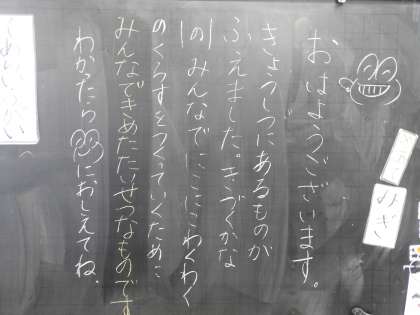 おはようございます。
きょうしつにあるものが
ふえました。きづくかな
1の1みんなでにこにこわくわく
のくらすをつくっていくために
みんなできめたたいせつなものです
わかったら におしえてね。
みぎ